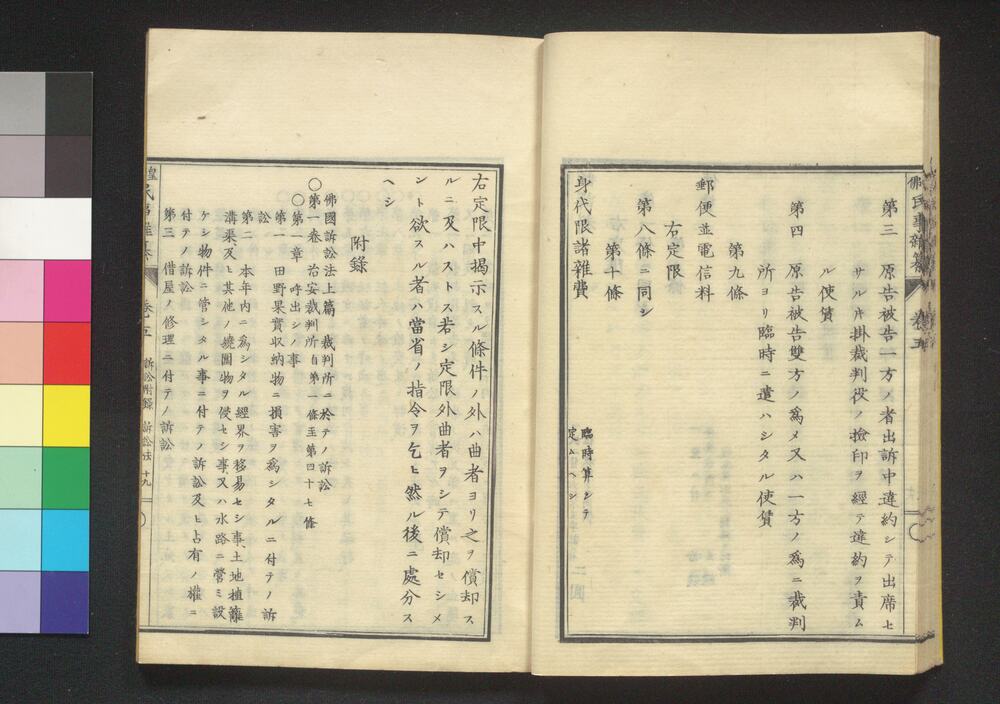 佛民事雜纂
第三　原告被告一方ノ者出訴中違約シテ出席セ
サル𪜈掛裁判役ノ撿印ヲ經テ違約ヲ責ム
ル使賃
第四　原告被告雙方ノ爲メ又ハ一方ノ爲ニ裁判
所ヨリ臨時ニ遣ハシタル使賃
第九條
郵便並電信料
右定限
第八條ニ同シ
第十條
身代限諸雜費
臨時算シテ
定ムヘシ
右定限中揭示スル條件ノ外ハ曲者ヨリ之ヲ償却ス
ルニ及ハストス若シ定限外曲者ヲシテ償却セシメ
ント欲スル者ハ當省ノ指令ヲ乞ヒ然ル後ニ處分ス
ヘシ
附錄
佛國訴訟法上篇　裁判所ニ於テノ訴訟
〇第一卷　治安裁判所　自第一條至第四十七條
〇第一章　呼出シノ事
第一　田野果實収納物ニ損害ヲ爲シタルニ付テノ訴
訟
第二　本年內ニ爲シタル經界ヲ移易セシ事、土地植籬
溝渠及ヒ其他ノ繞圍物ヲ侵セシ事又ハ水路ニ營ミ設
ケシ物件ニ管シタル事ニ付テノ訴訟及ヒ占有ノ權ニ
付テノ訴訟
第三　借屋ノ修理ニ付テノ訴訟
卷五　訴訟附錄　訴訟法　十九